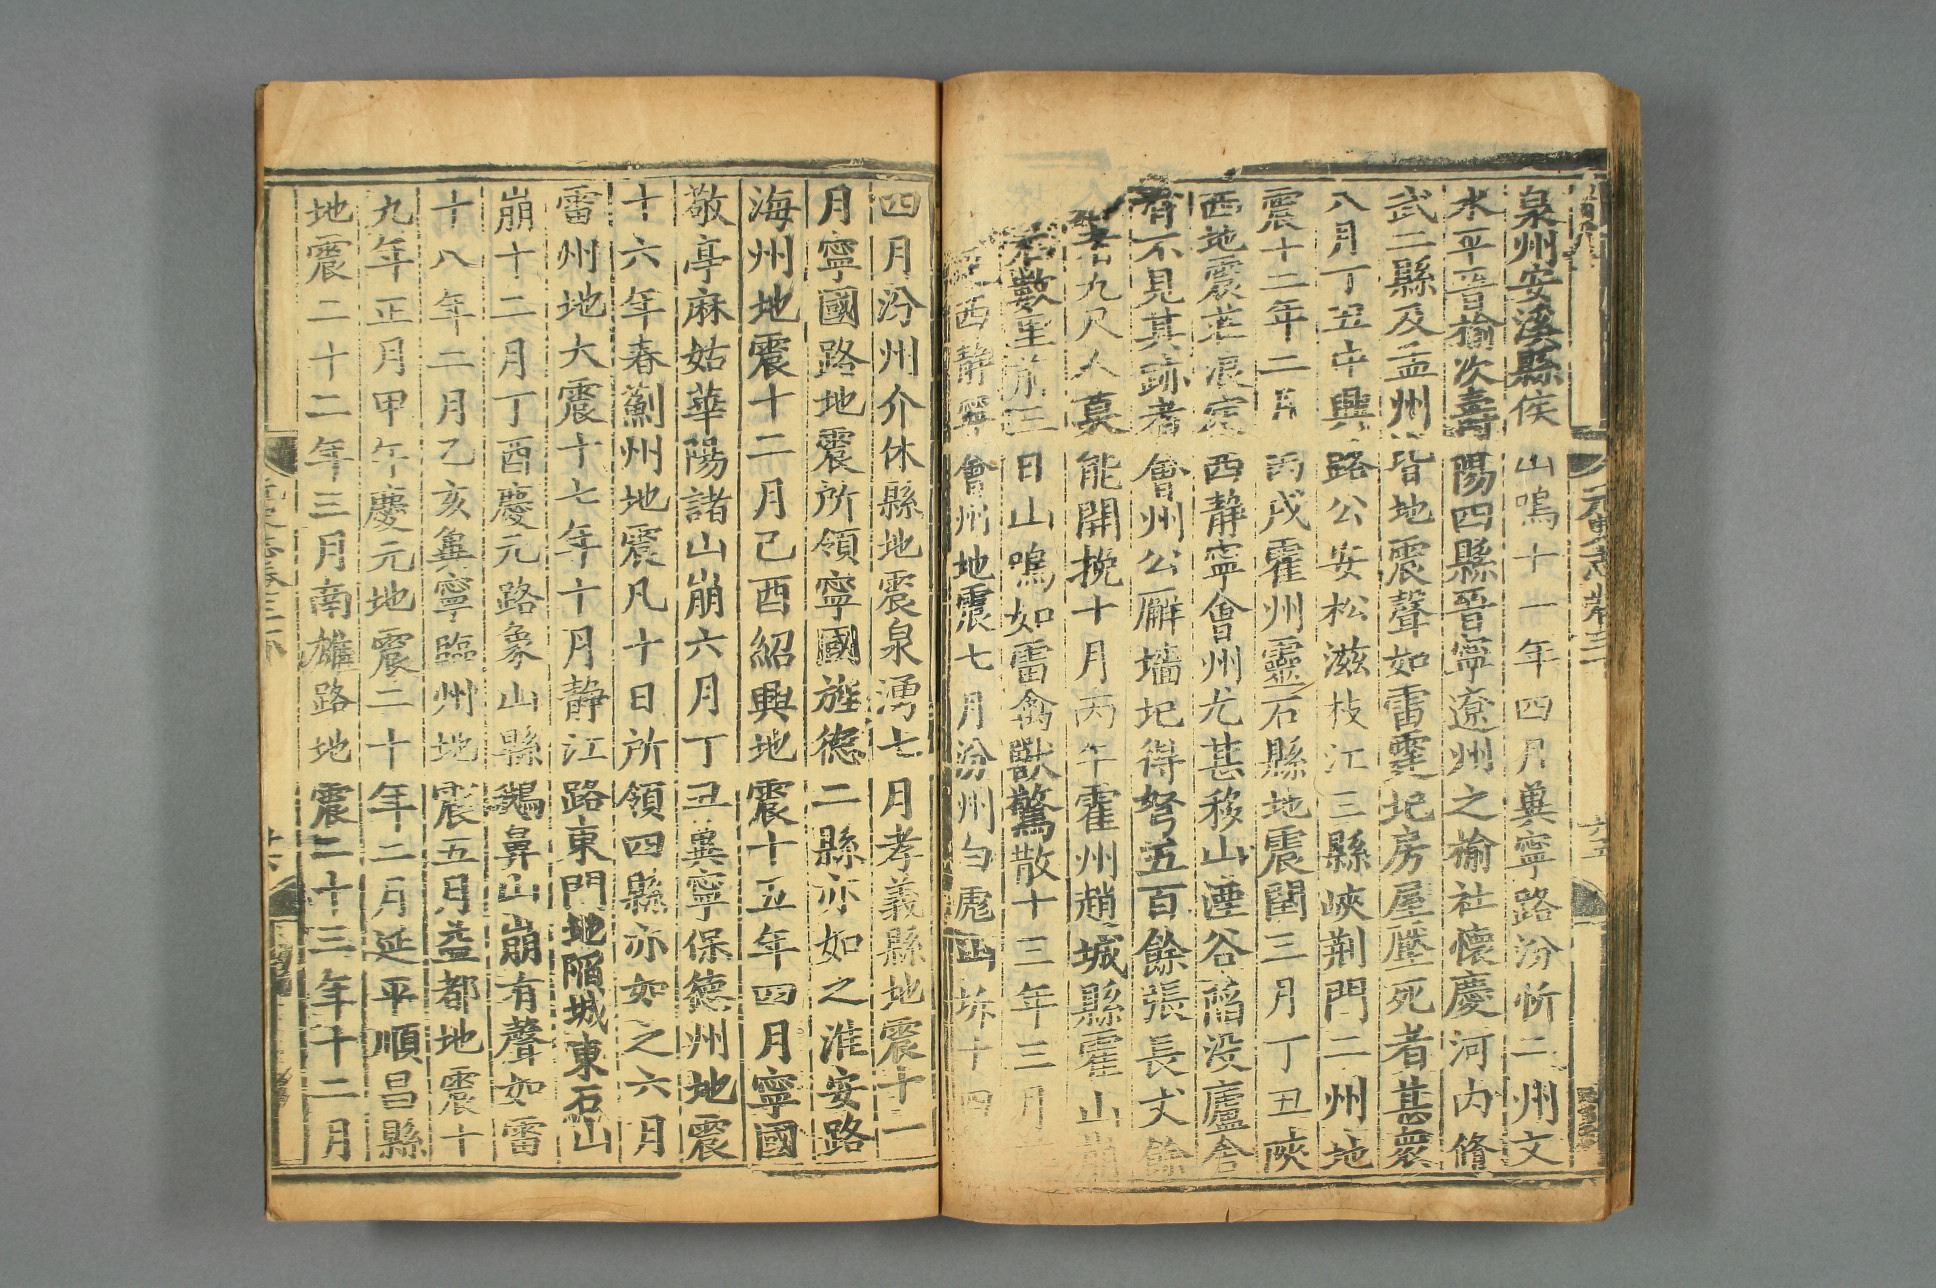 泉州安溪縣侯山鳴十一年四月冀寧路汾忻二州文
水平晉榆次壽陽四縣晉寧遼州之榆社懷慶河內脩
武二縣及孟州皆地震聲如雷霆圮房屋壓死者甚衆
八月丁丑中興路公安松滋枝江三縣峽荆門二州地
震十二年二月丙戌霍州靈石縣地震閏三月丁丑陜
西地震莊浪定西靜寧會州尤甚移山湮谷陷没廬舍
有不見其跡者會州公廨墻圮得弩五百餘張長丈餘
者九尺人莫能開挽十月丙午霍州趙城縣霍山崩
數里前三日山鳴如雷禽獸驚散十三年三月
西靜寧會州地震七月汾州白彪山坼十四
四月汾州介休縣地震泉湧七月孝義縣地震十一
月寧國路地震所領寧國旌德二縣亦如之淮安路
海州地震十二月己酉紹興地震十五年四月寧國
敬亭麻姑華陽諸山崩六月丁丑冀寧保德州地震
十六年春薊州地震凡十日所領四縣亦如之六月
雷州地大震十七年十月靜江路東門地陷城東石山
崩十二月丁酉慶元路象山縣鵝鼻山崩有聲如雷
十八年二月乙亥冀寧臨州地震五月益都地震十
九年正月甲午慶元地震二十年二月延平順昌縣
地震二十二年三月南雄路地震二十三年十二月